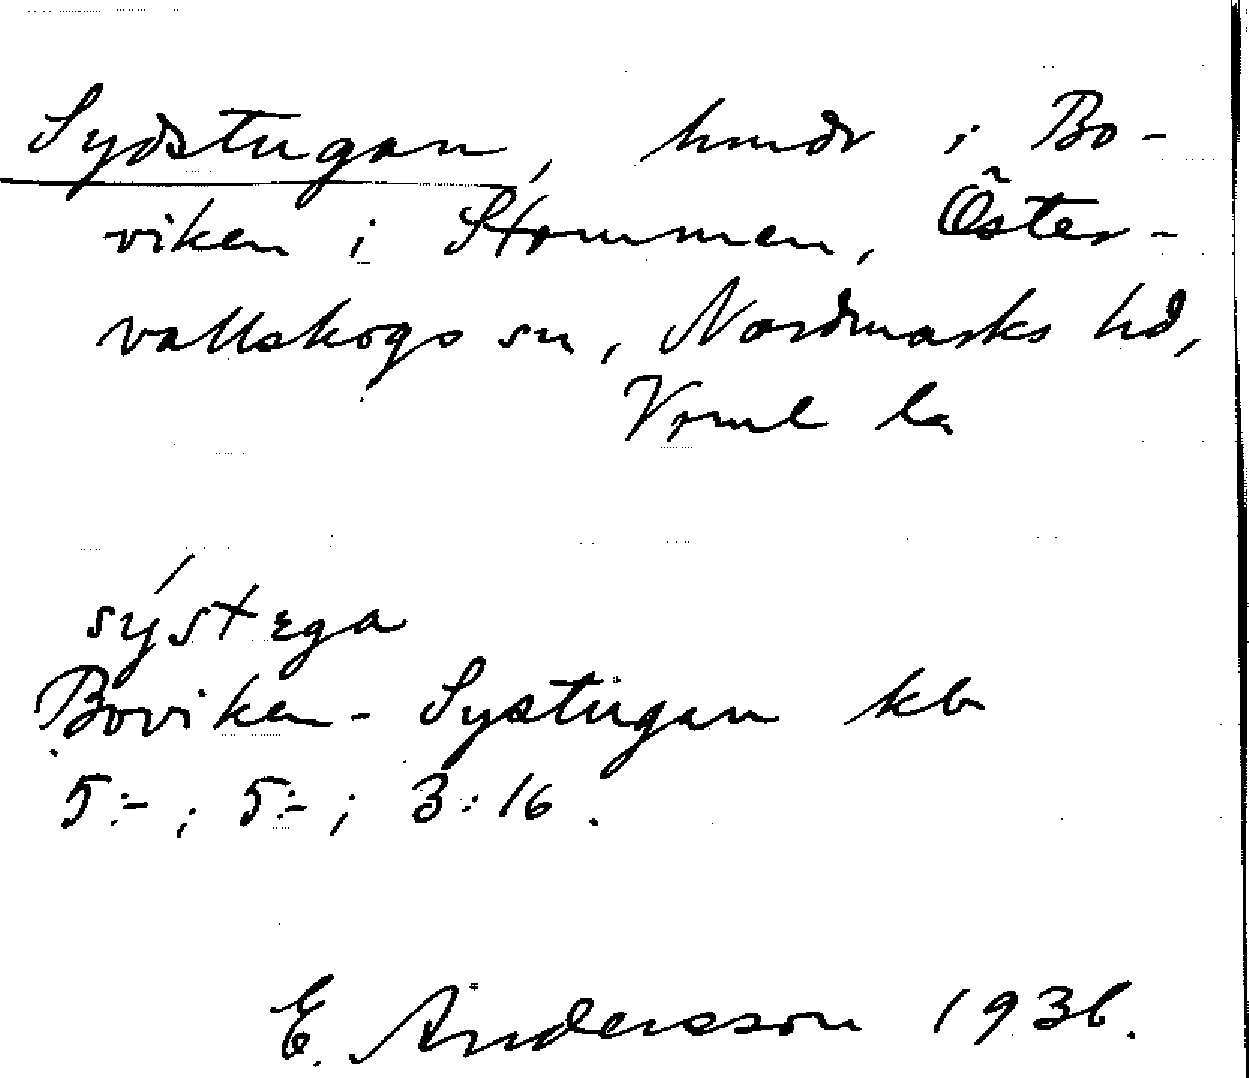 Sydstugan, hmdr i Bo-
viken i Stommen, Öster-
vallskogs sn, Nordmarks hd,
Vrml la
sýstega
Boviken - Systugan kb
5:- ; 5:- ; 3:16.
E. Andersson 1936.